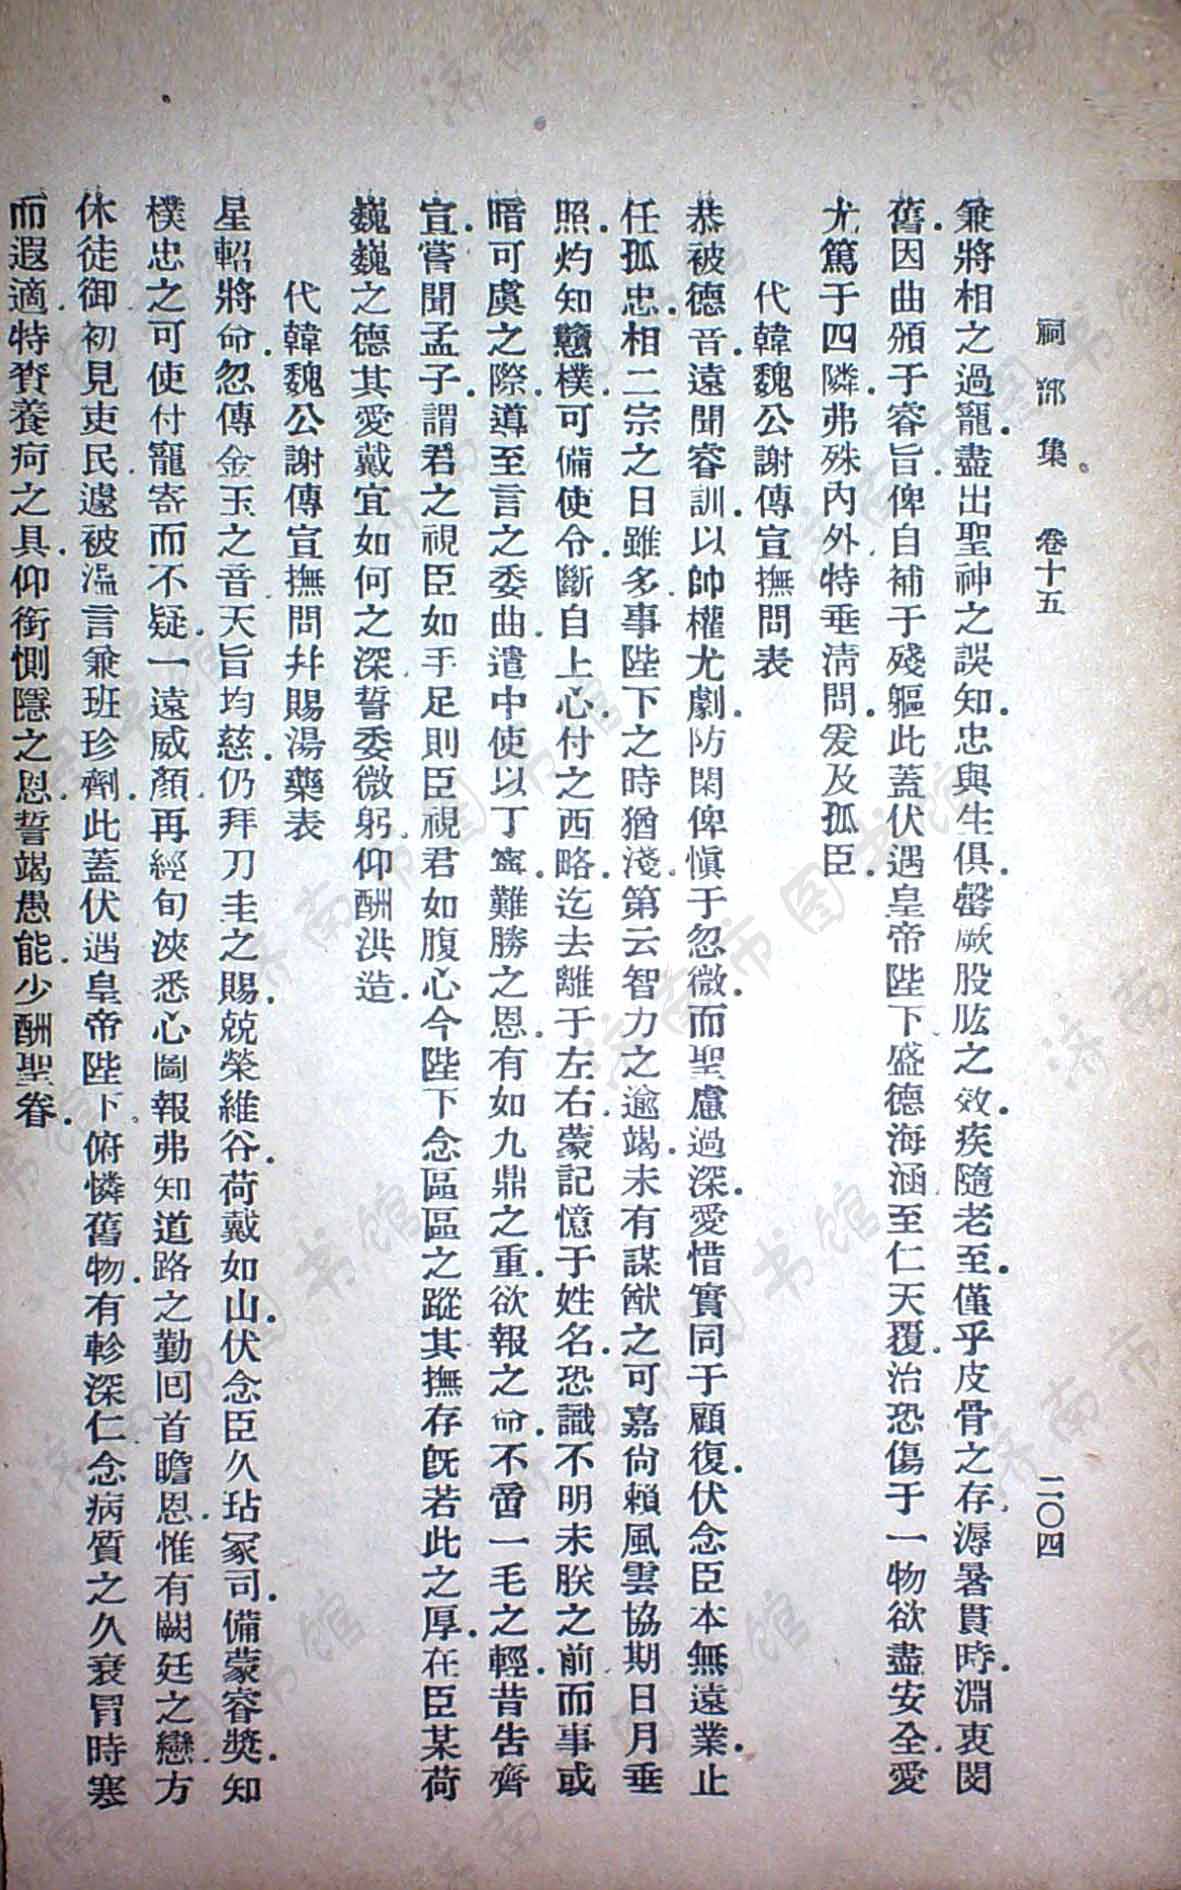 祠部集 卷十五 二〇四
兼將相之過寵.盡出聖神之誤知.忠與生俱.罄厥股肱之效.疾隨老至.僅乎皮骨之存.溽暑貫時.淵衷閔
舊.因曲頒于睿旨.俾自補于殘軀.此蓋伏遇皇帝陛下.盛德海涵.至仁天覆.治恐傷于一物.欲盡安全.愛
尤篤于四隣.弗殊內外.特垂清問.爰及孤臣.
代韓魏公謝傳宣撫問表
恭被德音.遠聞睿訓.以帥權尤劇.防閑俾慎于忽微.而聖慮過深.愛惜實同于顧復.伏念臣本無遠業.止
任孤忠.相二宗之日雖多.事陛下之時猶淺.第云智力之逾竭.未有謀猷之可嘉.尙賴風雲協期.日月垂
照.灼知戇樸.可備使令.斷自上心.付之西略.迄去離于左右.蒙記憶于姓名.恐識不明未朕之前.而事或
暗可虞之際.導至言之委曲.遣中使以丁寧.難勝之恩.有如九鼎之重.欲報之命.不啻一毛之輕.昔吿齊
宣.嘗聞孟子.謂君之視臣如手足.則臣視君如腹心.今陛下念區區之蹤.其撫存旣若此之厚.在臣某荷
巍巍之德.其愛戴宜如何之深.誓委微躬.仰酬洪造.
代韓魏公謝傳宣撫問幷賜湯藥表
星軺將命.忽傳金玉之音.天旨均慈.仍拜刀圭之賜.兢榮維谷.荷戴如山.伏念臣久玷冢司.備蒙睿獎.知
樸忠之可使.付寵寄而不疑.一遠威顏.再經旬浹.悉心圖報.弗知道路之勤.回首瞻恩.惟有闕廷之戀.方
休徒御.初見吏民.遽被溫言.兼班珍劑.此蓋伏遇皇帝陛下.俯憐舊物.有軫深仁.念病質之久衰.冒時寒
而遐適.特賚養疴之具.仰銜惻隱之恩.誓竭愚能.少酬聖眷.